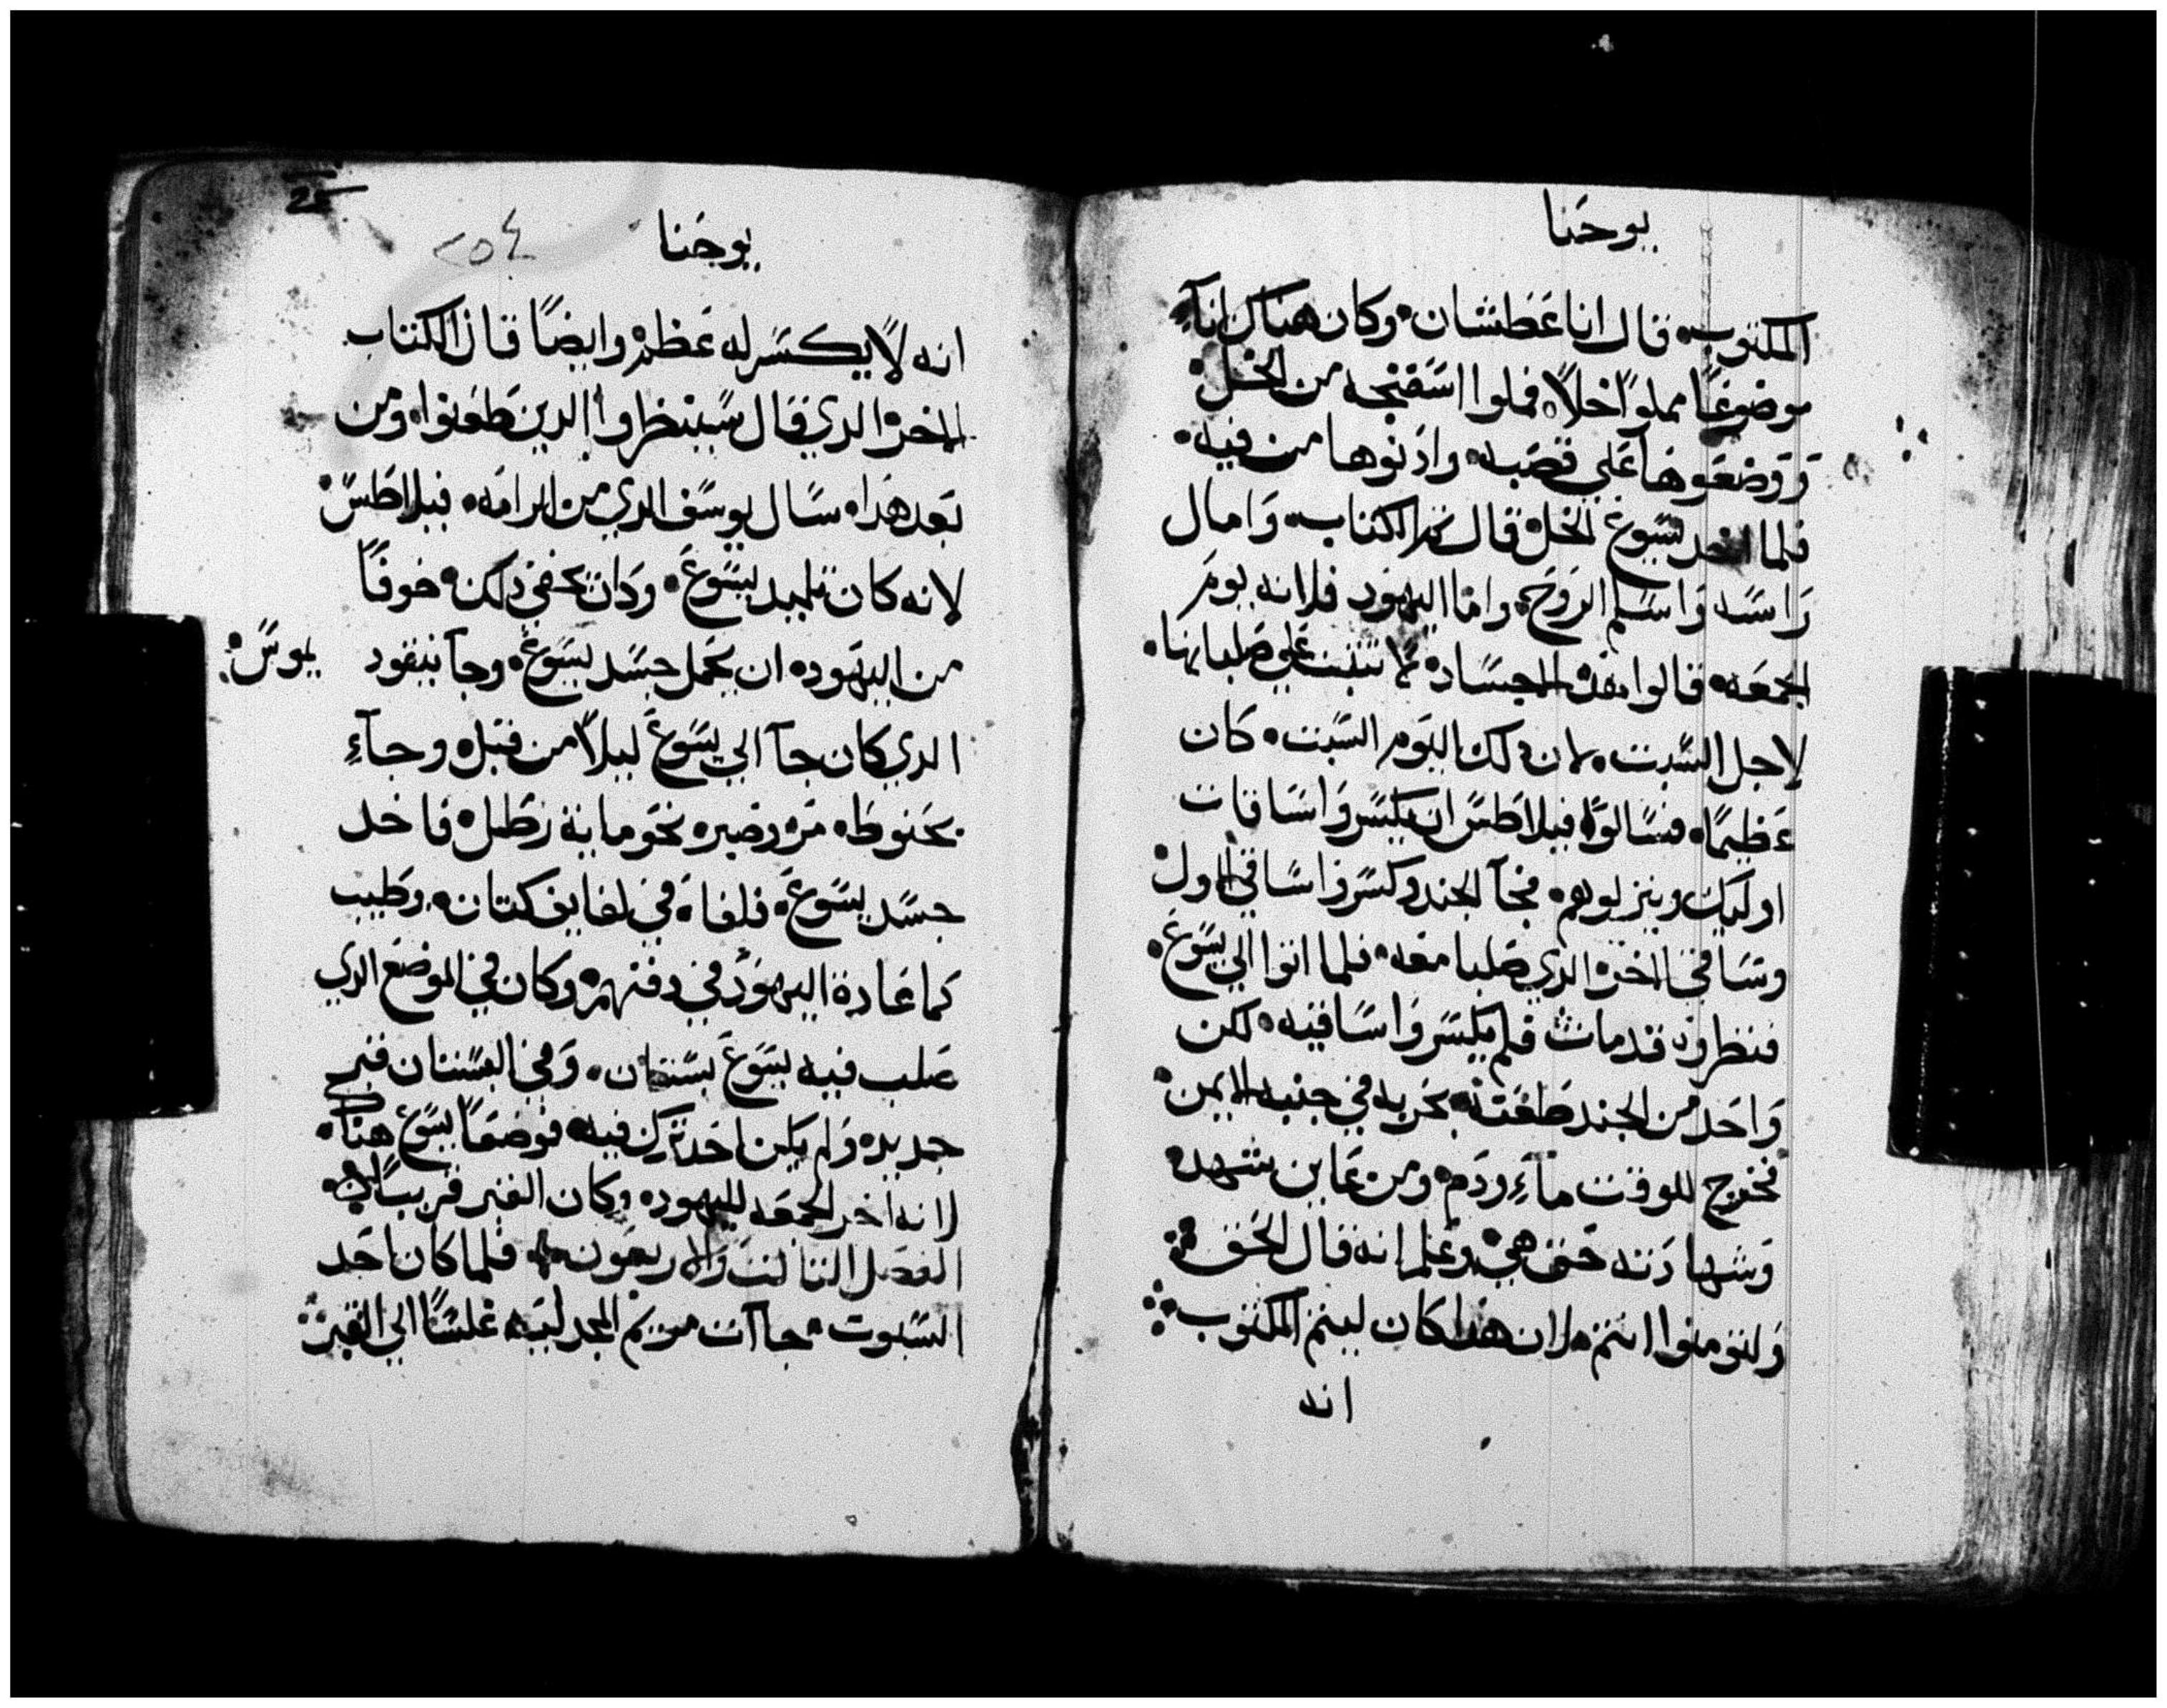 يوحنا
المكتوب، قال انا عطشان، وكان هناك انآء
موضوعًا مملوًا خلاً، فملوا اسفنجه من الخل
ووضعوها على قصبه، وادنوها من فيه،
فلما اخد يسوع الخل قال تم الكتاب، وامال
راسه واسلم الروح، واما اليهود فلانه يوم
الجمعه، قالوا هذه الاجساد لا تثبت على صلبانها،
لاجل السبت، لان ذلك اليوم السبت، كان
عظيمًا، فسالوا فيلاطس ان يكسروا ساقات
اوليك وينزلوهم، فجآ الجند وكسروا ساقي الاول
وساقي الاخر الدي صلبا معه، فلما اتوا الي يسوع،
فنظروه قد مات فلم يكسروا ساقيه، لكن
واحد من الجند طعنه بحربه في جنبه الايمن
فخرج للوقت مآء ودم، ومن عاين شهد
وشهادته حق هي، وعلم انه قال الحق
ولتومنوا انتم لان هدا كان ليتم المكتوب
انه
يوحنا
٢٥٤
انه لا يكسر له عظم، وايضًا قال الكتاب
الاخر الدي قال سينظروا الدين طعنوا، ومن
بعد هدا، سال يوسف الدي من الرامه، فيلاطس
لانه كان تلميد يسوع، وكان يخفي دلك، خوفًا
من اليهود، ان يحمل جسد يسوع، وجآ نيقود يموس
الدي كان جآ الي يسوع ليلاً من قبل، وجآء
بحنوط، مر وصبر، نحو ماية رطل، فاخد
جسد يسوع، فلفاه في لفايف كتان، وطيب
كما عادة اليهود في دفنهم، وكان في الموضع الدي
صلب فيه يسوع بستان، وفي البستان قبر
جديد، ولم يكن احد ترك فيه، فوضعا يسوع هناك،
لانه اخر الجمعه لليهود، وكان القبر قريبًا
الفصل الثالث والاربعون، فلما كان احد
السبوت، جاآت مريم المجدليه، غلسًا الي القبر